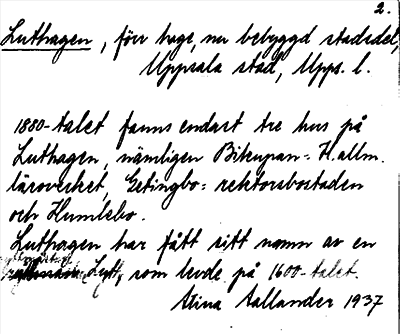 2.
Luthagen, förr hage, nu bebyggd stadsdel,
Uppsala stad, Upps. l.
1880-talet fanns endast tre hus på
Luthagen, nämligen Bikupan = H. allm.
läroverket, Getingbo = rektorsbostaden
och Humlebo.
Luthagen har fått sitt namn av en
Lutt, som levde på 1600-talet.
Stina Aallander 1937